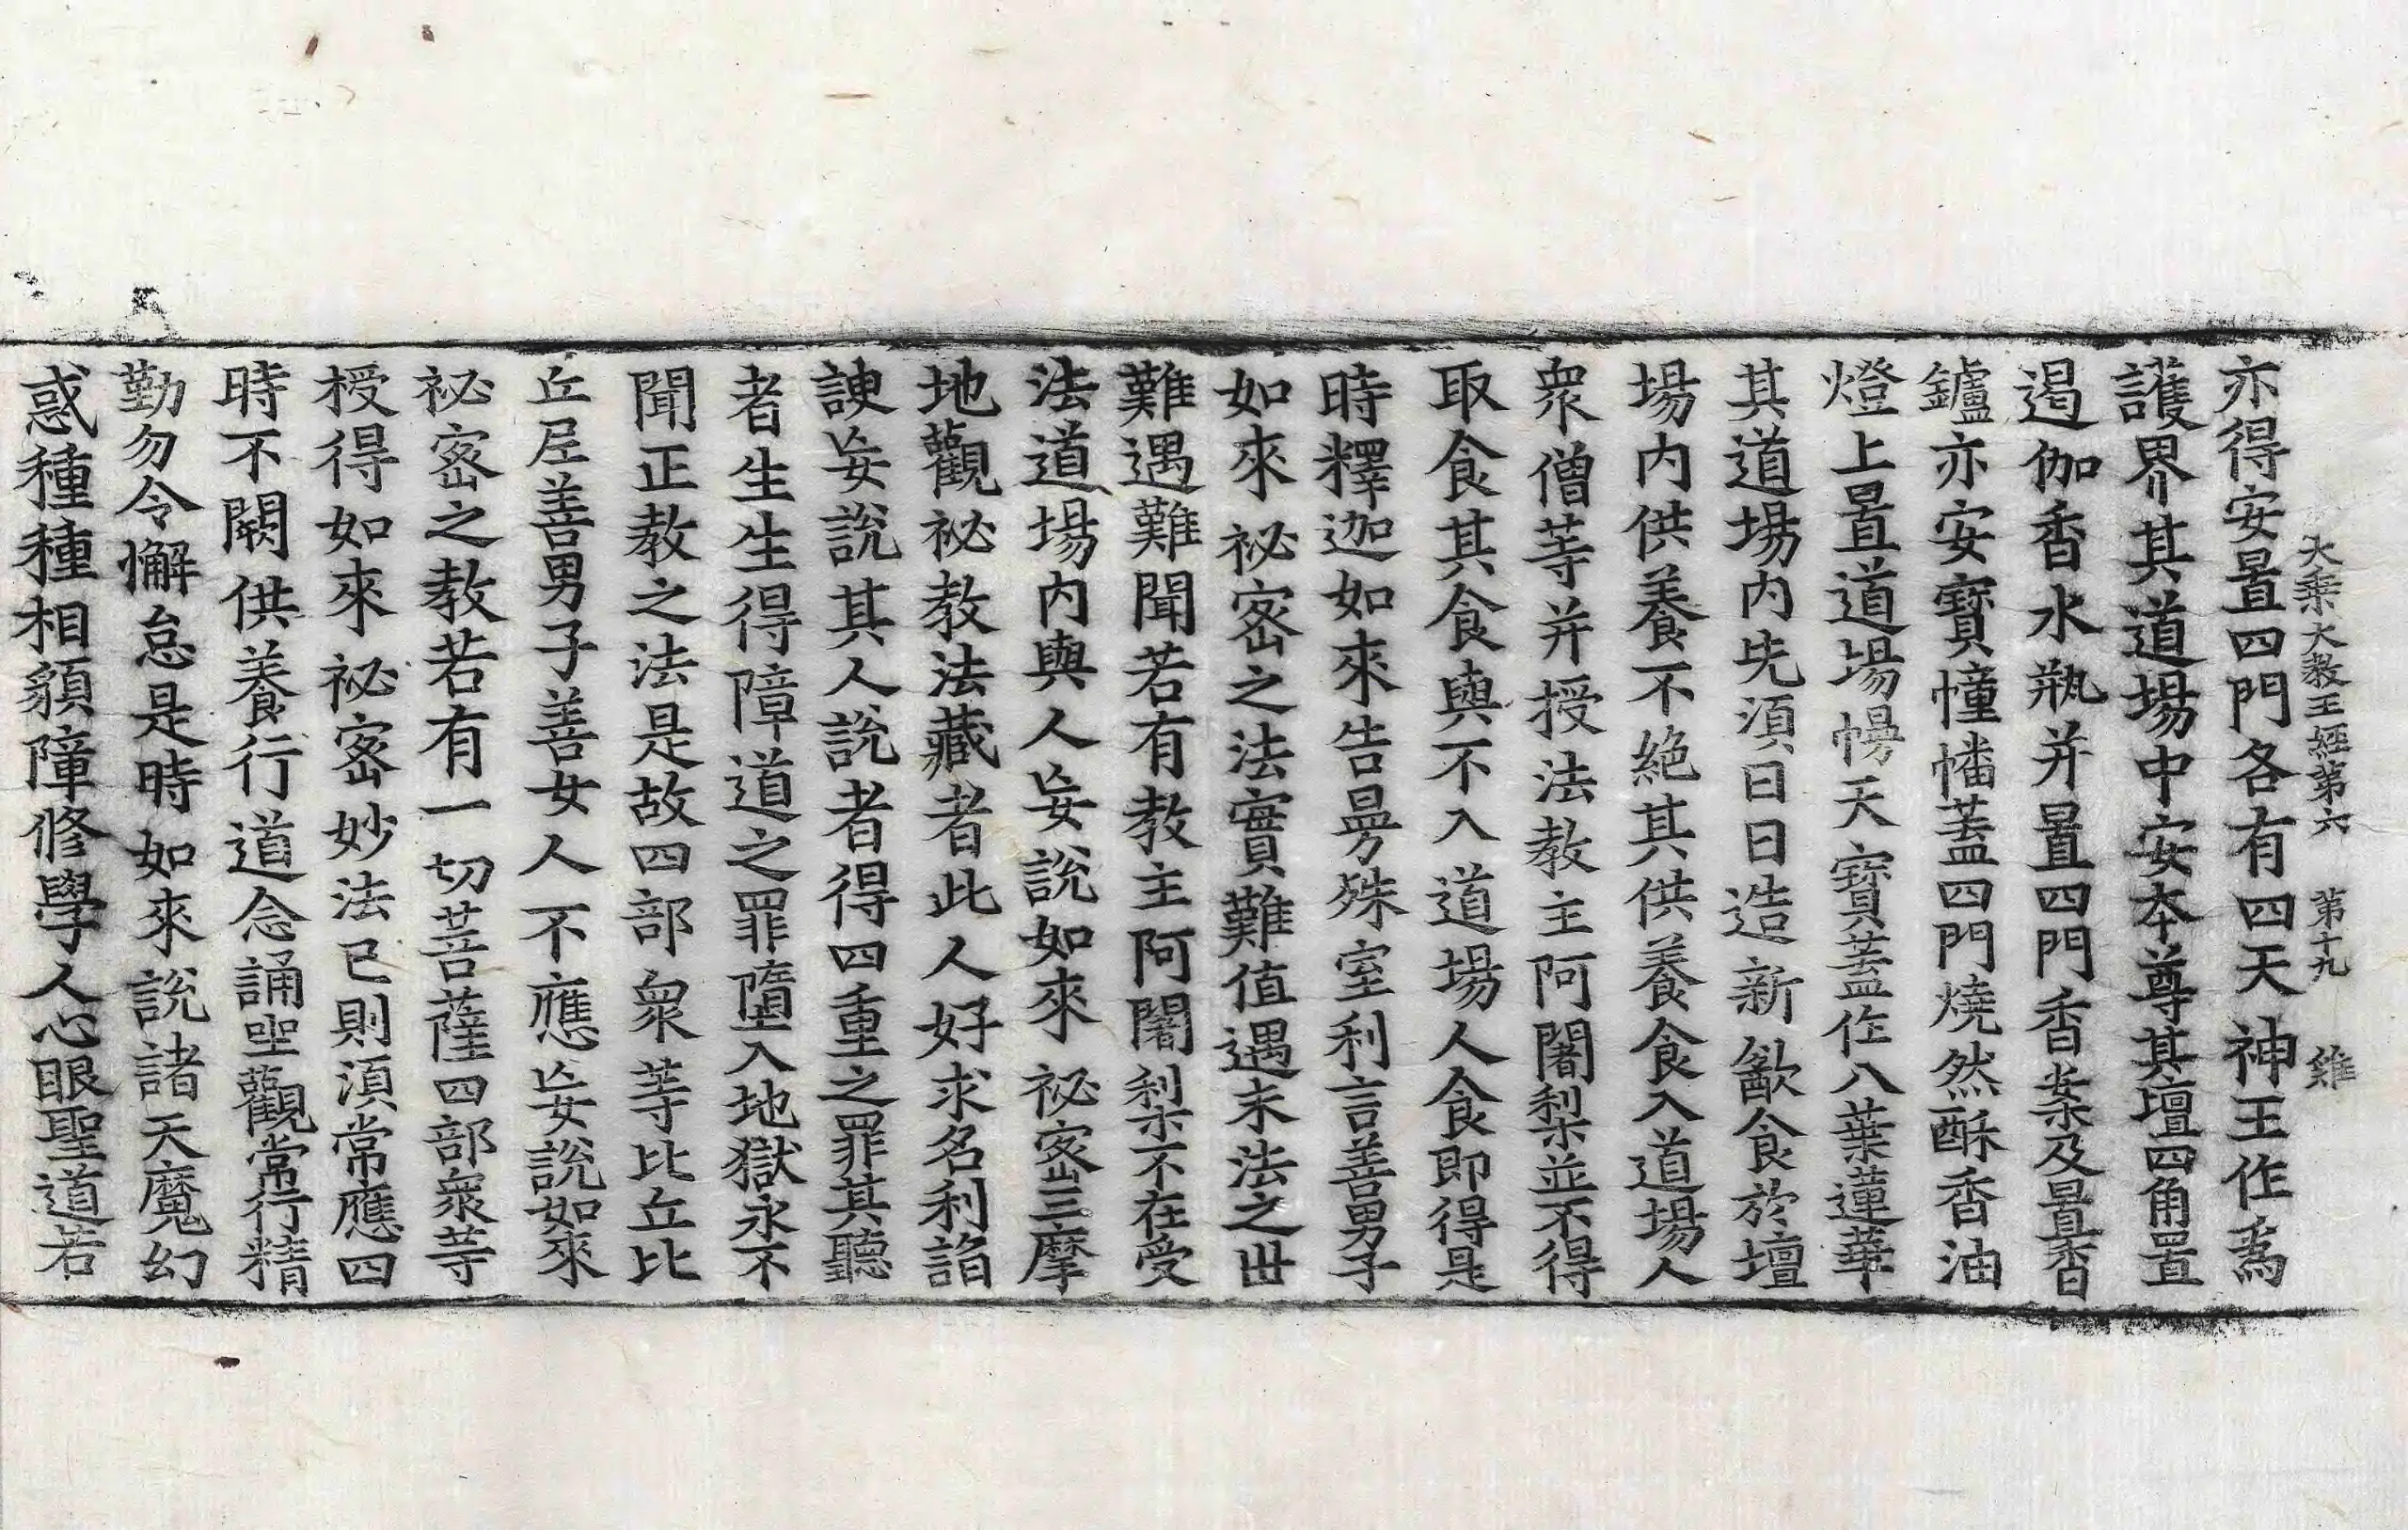 大乘大教王經第六 第十九 雞
亦得安置四門各有四天神王作爲
護界其道場中安本尊其壇四角置
遏伽香水瓶并置四門香案及置香
鑪亦安寶幢幡蓋四門燒然酥香油
燈上置道場幔天寶蓋作八葉蓮華
其道場內先湏日日造新歡食於壇
場內供養不絶其供養食入道場人
衆僧䓁并授法教主阿闍梨並不得
取食其食與不入道場人食即得是
時釋迦如來告曼殊室利言善男子
如來祕密之法實難值遇末法之世
難遇難聞若有教主阿闍梨不在受
法道場內與人妄說如來祕密三摩
地觀祕教法藏者此人好求名利諂
諛妄說其人說者得四重之罪其聽
者生生得障道之罪墮入地獄永不
聞正教之法是故四部衆䓁比丘比
丘尼善男子善女人不應妄說如來
祕密之教若有一切菩薩四部衆䓁
授得如來祕密妙法已則湏常應四
時不闕供養行道念誦聖觀常行精
勤勿令懈怠是時如來說諸天魔幻
惑種種相貌障修學人心眼聖道若